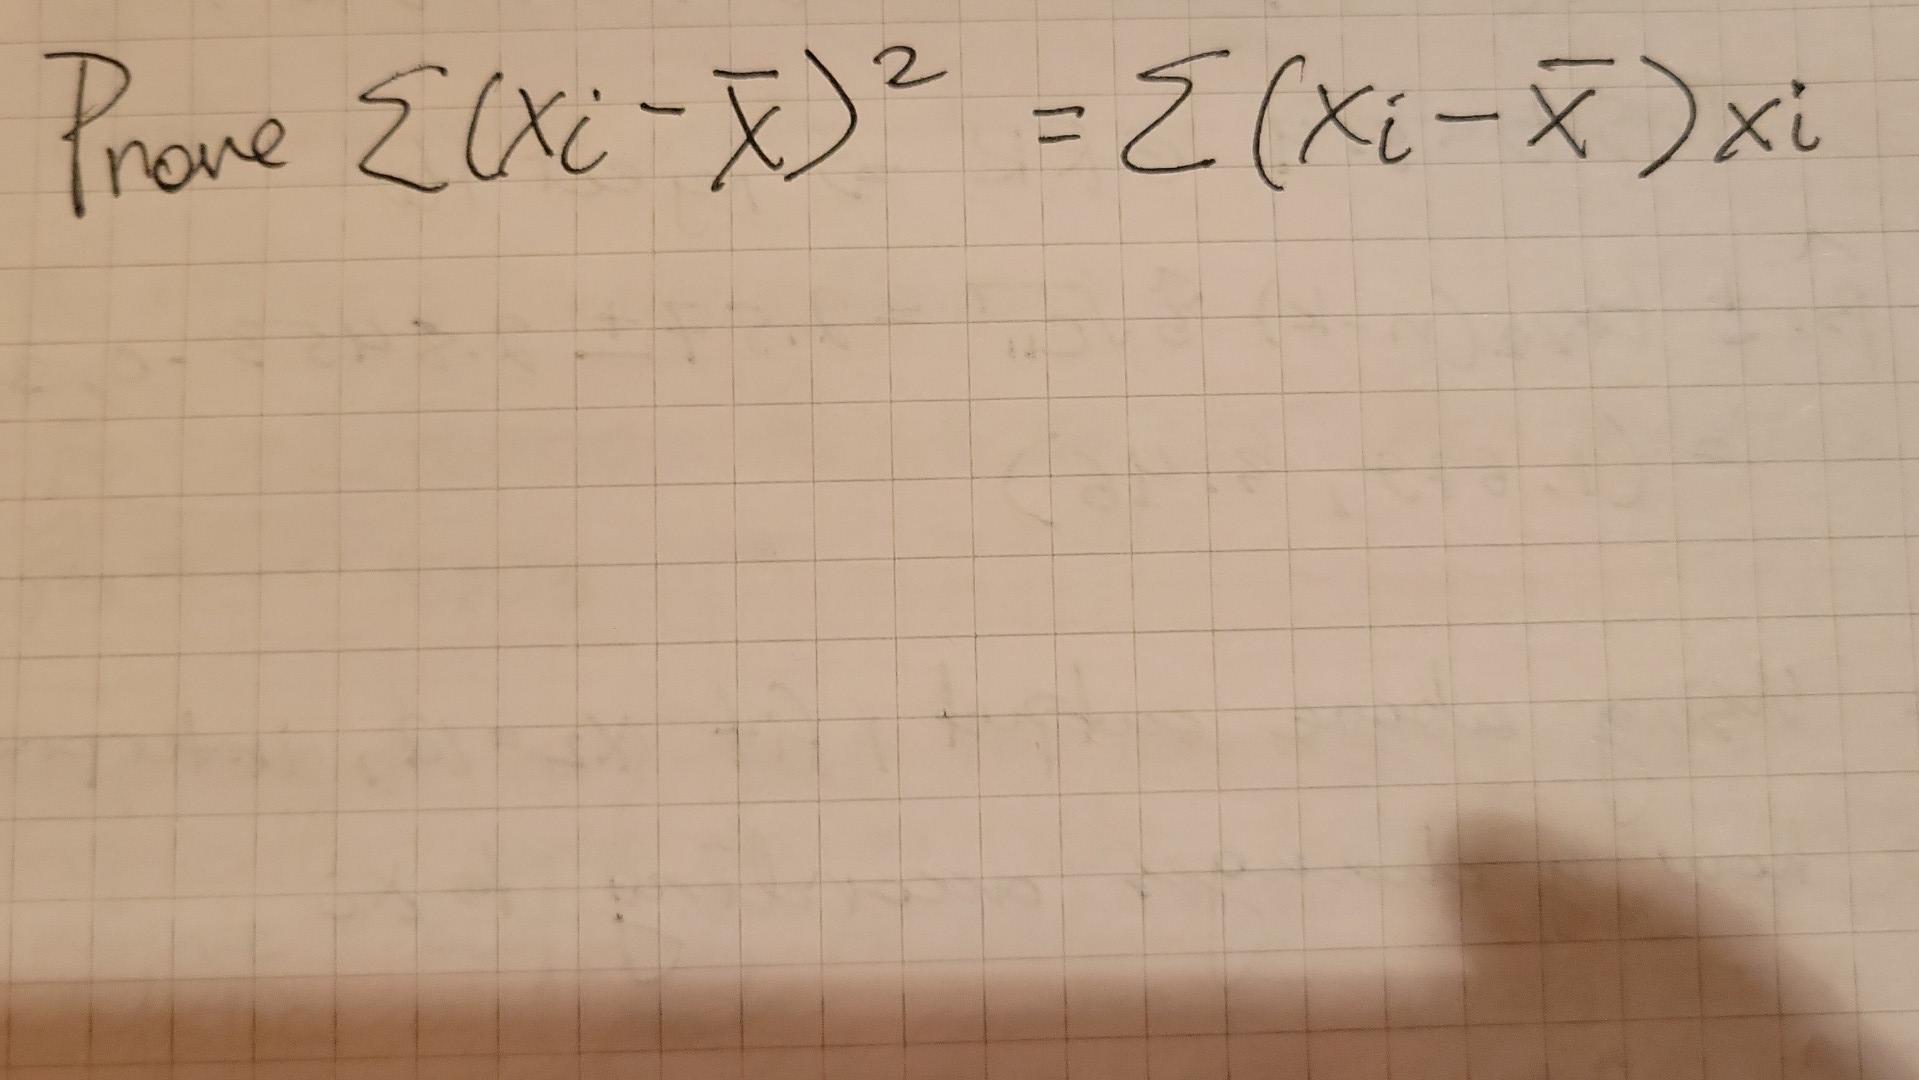 Prove Σ(xi - x̄)² = Σ(xi - x̄)xi